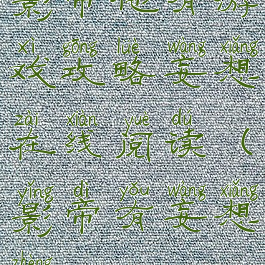 影帝 有游
xì gōng lüè wàng xiǎng
戏攻略妄想
zài xiàn yuè dú
在线阅读（
yǐng dì yǒu wàng xiǎng
影帝有妄想